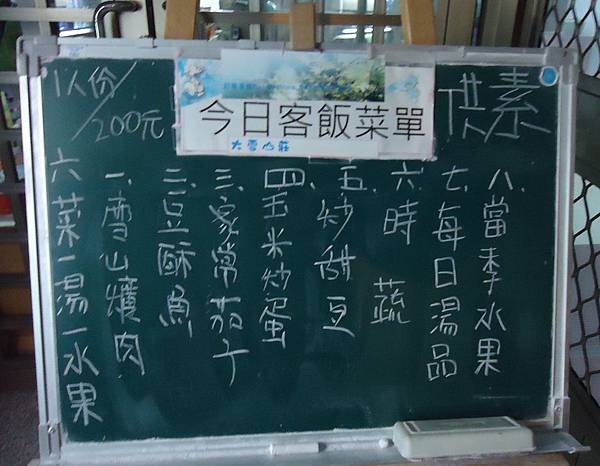 今日客飯菜單
大雪山莊
供素
1人份/200元
六菜一湯一水果
一.雪山爌肉
二.豆酥魚
三.家常茄子
四.玉米炒蛋
五.炒甜豆
六.時蔬
七.每日湯品
八.當季水果